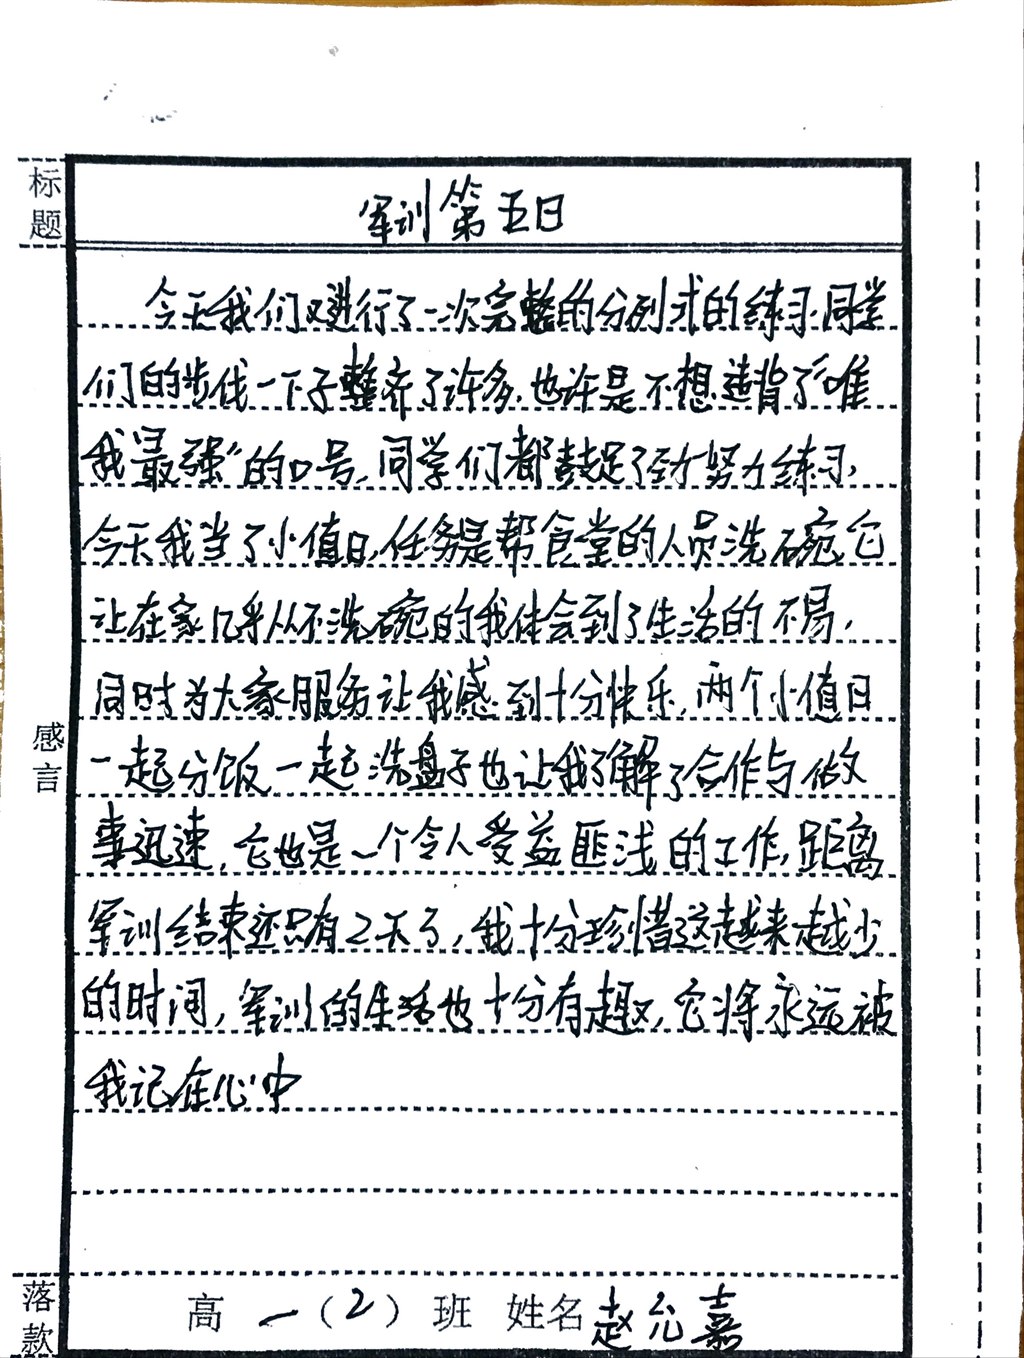 标题
军训第五日
今天我们又进行了一次完整的分列式的练习.同学
们的步伐一下子整齐了许多.也许是不想违背了“唯
我最强”的口号,同学们都鼓足了劲努力练习,
今天我当了小值日,任务是帮食堂的人员洗碗,它
让在家几乎从不洗碗的我体会到了生活的不易,
同时为大家服务让我感到十分快乐,两个小值日
一起分饭一起洗盘子也让我了解了合作与做
事迅速,它也是一个令人受益匪浅的工作,距离
军训结束还只有2天了,我十分珍惜这越来越少
的时间,军训的生活也十分有趣,它将永远被
我记在心中
感言
落款
高一(2)班 姓名赵允嘉